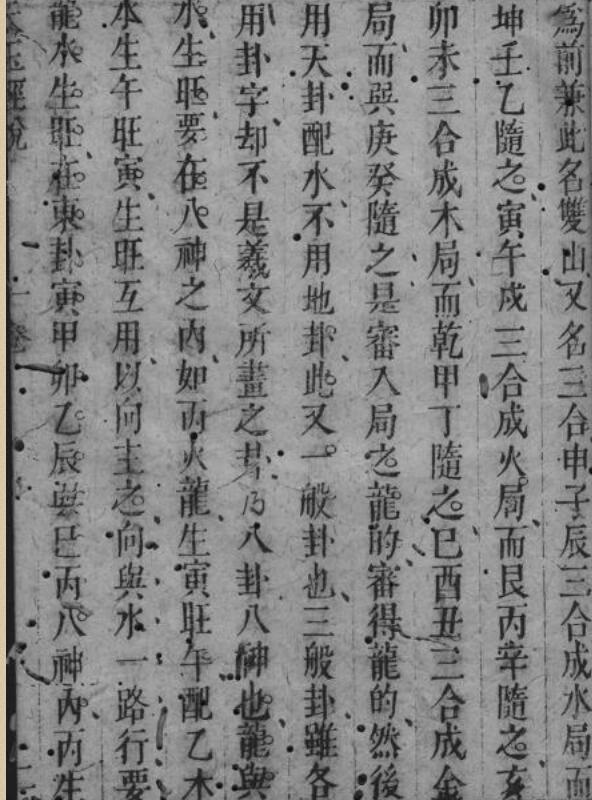 為前兼此名雙山又名三合申子辰三合成水局而
坤壬乙隨之寅午戌三合成火局而艮丙辛隨之亥
卯未三合成木局而乾甲丁隨之巳酉丑三合成金
局而巽庚癸隨之是審入局之龍的審得龍的然後
用天卦配水不用地卦此又一般卦也三般卦雖各
用卦字却不是羲文所畫之卦乃八卦八神也龍與
水生旺要在八神之內如丙火龍生寅旺午配乙木
水生午旺寅生旺互用以向主之向與水一路行要
龍水生旺在東卦寅甲卯乙辰巽巳丙八神內丙生
天玉經說